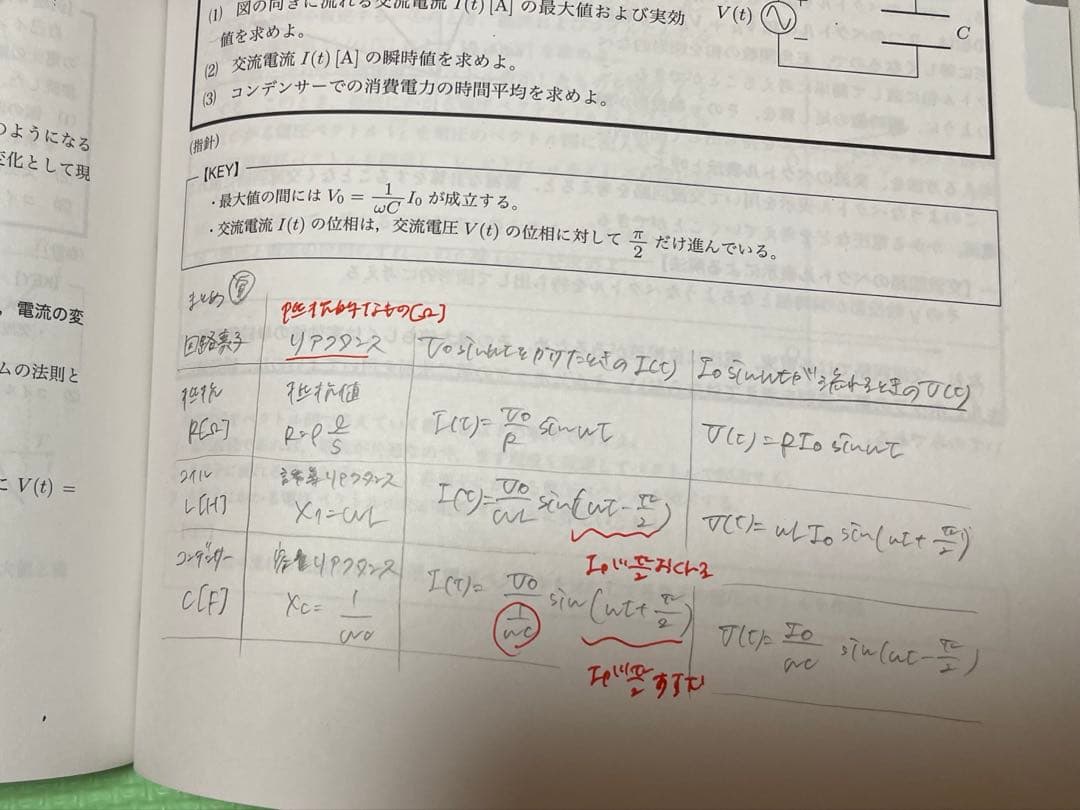 (1) 図の向きに流れる交流電流 I(t) [A] の最大値および実効
値を求めよ。
(2) 交流電流 I(t) [A] の瞬時値を求めよ。
(3) コンデンサーでの消費電力の時間平均を求めよ。
V(t)
C
のようになる
変化として現
電流の変
ムの法則と
に V(t) =
(指針)
【KEY】
・最大値の間には V₀ = 1/ωC I₀ が成立する。
・交流電流 I(t) の位相は，交流電圧 V(t) の位相に対して π/2 だけ進んでいる。
まとめ
抵抗的なもの[Ω]
回路素子 リアクタンス V₀sinωtをかけたときの I(t) I₀sinωtが流れるときの V(t)
抵抗 R[Ω] 抵抗値 R=ρ ℓ/S I(t)= V₀/R sinωt V(t)=RI₀ sinωt
コイル L[H] 誘導リアクタンス X_L=ωL I(t)= V₀/ωL sin(ωt-π/2) V(t)=ωLI₀ sin(ωt+π/2)
Iがπ/2おくれる
コンデンサー C[F] 容量リアクタンス Xc= 1/ωC I(t)= V₀/(1/ωC) sin(ωt+π/2) V(t)= I₀/ωC sin(ωt-π/2)
Iがπ/2すすむ